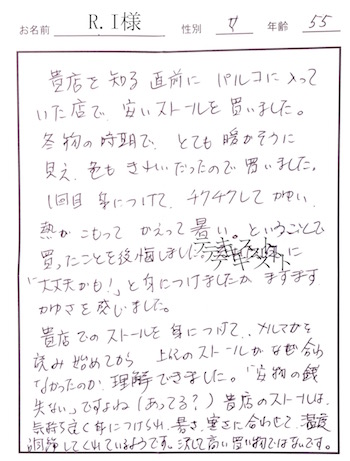 お名前 R.I様 性別 女 年齢 55
貴店を知る直前に パルコに入って
いた店で、安いストールを買いました。
冬物の時期で、とても暖かそうに
見え、色もきれいだったので買いました。
1回目 身につけて、チクチクしてかゆい、
熱がこもって かえって暑い。ということで
買ったことを後悔しまし に
「大丈夫かも!」と身につけましたが ますます
かゆさを感じました。
貴店でのストールを身につけて、メルマガを
読み始めてから 上記のストールがなぜ合わ
なかったのか、理解できました。「安物の銭
失ない」ですよね(あってる?) 貴店のストールは、
気持ち良く身につけられ、暑さ、寒さに合わせて、温度
調節してくれているようです。決して高い買い物ではないです。
テキスト